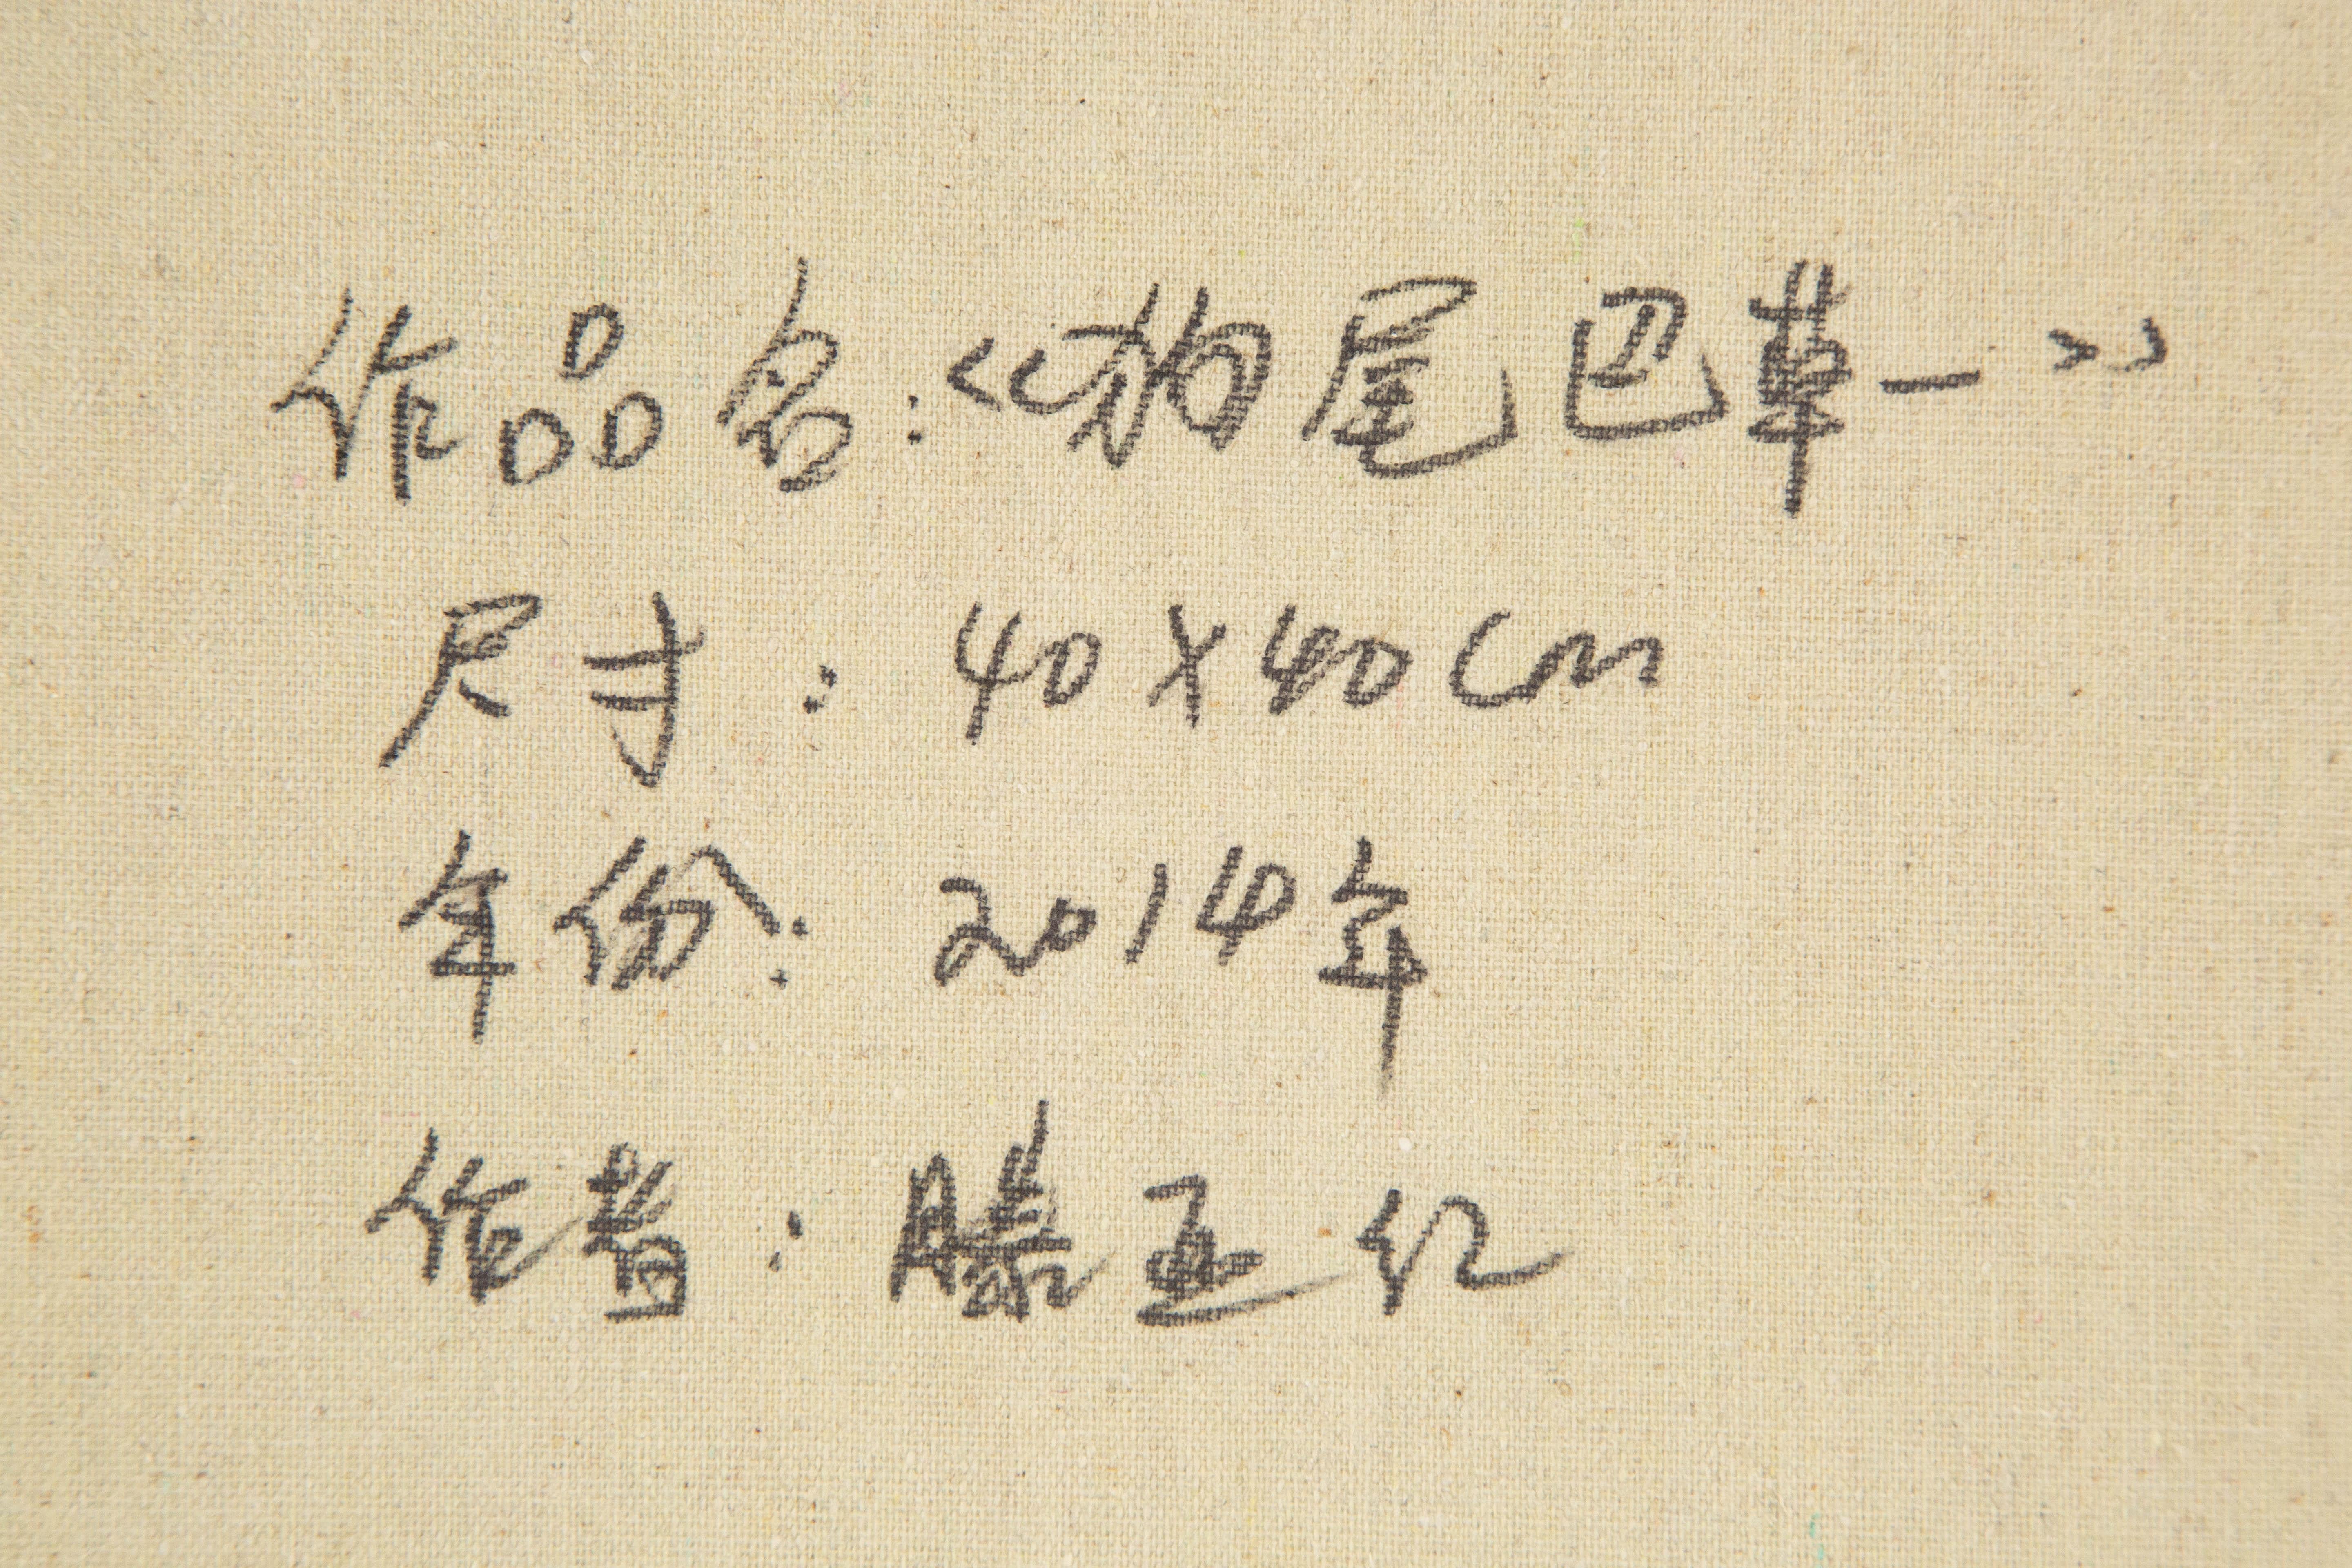 作品名:《狗尾巴草一》
尺寸:40×40cm
年份:2014年
作者:滕正